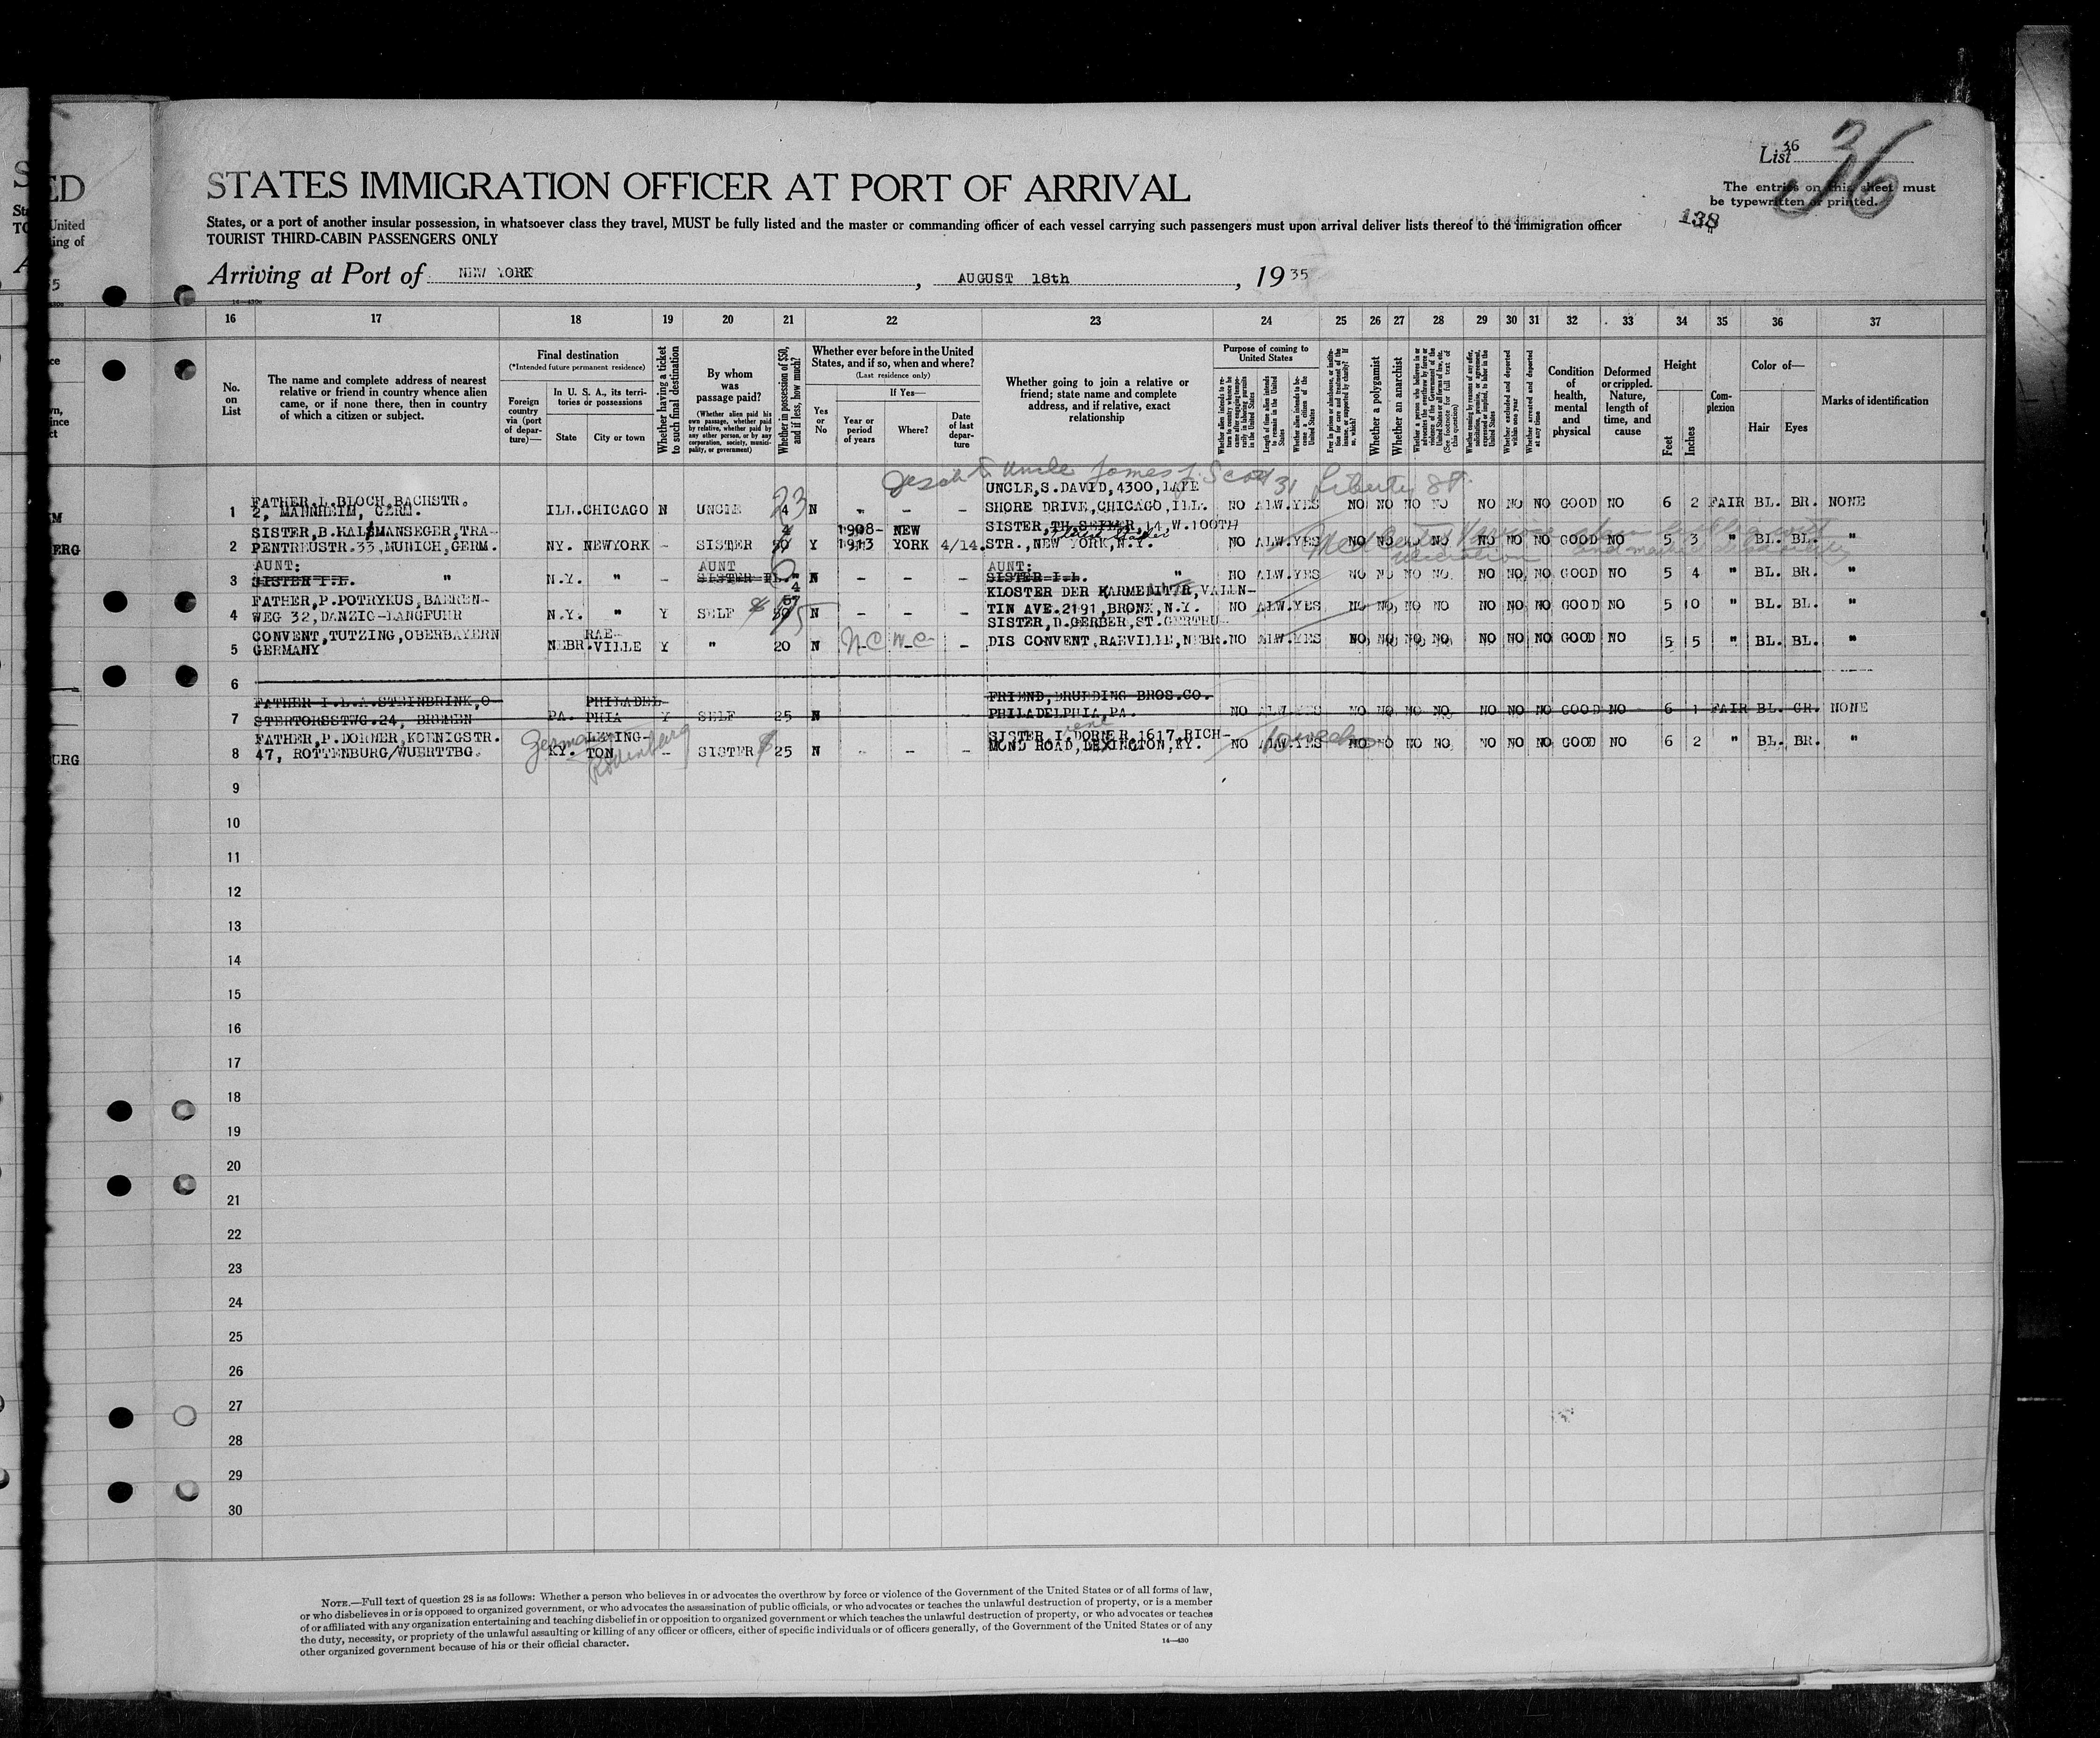 List 36
36
STATES IMMIGRATION OFFICER AT PORT OF ARRIVAL
The entries on this sheet must
be typewritten or printed.
138
States, or a port of another insular possession, in whatsoever class they travel, MUST be fully listed and the master or commanding officer of each vessel carrying such passengers must upon arrival deliver lists thereof to the immigration officer
TOURIST THIRD-CABIN PASSENGERS ONLY
Arriving at Port of NEW YORK, AUGUST 18th, 1935
16 17 18 19 20 21 22 23 24 25 26 27 28 29 30 31 32 33 34 35 36 37
No. on List
The name and complete address of nearest relative or friend in country whence alien came, or if none there, then in country of which a citizen or subject.
Final destination
(*Intended future permanent residence)
Foreign country via (port of departure)—
In U. S. A., its territories or possessions
State
City or town
Whether having a ticket to such final destination
By whom was passage paid?
(Whether alien paid his own passage, whether paid by relative, whether paid by any other person, or by any corporation, society, municipality, or government)
Whether in possession of $50, and if less, how much?
Whether ever before in the United States, and if so, when and where?
(Last residence only)
Yes or No
If Yes—
Year or period of years
Where?
Date of last departure
Whether going to join a relative or friend; state name and complete address, and if relative, exact relationship
Purpose of coming to United States
Length of time alien intends to remain in the United States
Whether alien intends to become a citizen of the United States
Whether a polygamist
Whether an anarchist
Whether excluded and deported within one year
Whether arrested and deported at any time
Condition of health, mental and physical
Deformed or crippled. Nature, length of time, and cause
Height
Feet
Inches
Complexion
Color of—
Hair
Eyes
Marks of identification
Uncle James J. Scott 31 Liberty St.
1 FATHER,L.BLOCH,BACHSTR. 2, MANNHEIM, GERM. ILL. CHICAGO N UNCLE 4 23 N - - - UNCLE,S.DAVID,4300,LAKE SHORE DRIVE,CHICAGO,ILL. NO ALW.YES NO NO NO NO NO NO NO GOOD NO 6 2 FAIR BL. BR. NONE
2 SISTER,B.HALSMANSEGER,TRAPENTREUSTR.33,MUNICH,GERM. NY. NEWYORK - SISTER 50 Y 1908-1913 NEW YORK 4/14. SISTER,TH.SEILER,14,W.100TH STR.,NEW YORK,N.Y. NO ALW.YES NO NO NO NO NO NO NO GOOD NO 5 3 " BL. BL. "
3 AUNT: SISTER I.L. " N.Y. " - AUNT SISTER I.L. " N - - - AUNT: SISTER I.L. " NO ALW.YES NO NO NO NO NO NO NO GOOD NO 5 4 " BL. BR. "
4 FATHER,P.POTRYKUS,BAERENWEG 32,DANZIG-LANGFUHR N.Y. " Y SELF 50 N - - - KLOSTER DER KARMELITER,VALENTIN AVE.2191,BRONX,N.Y. NO ALW.YES NO NO NO NO NO NO NO GOOD NO 5 10 " BL. BL. "
5 CONVENT,TUTZING,OBERBAYERN GERMANY NEBR. RAEVILLE Y " 20 N - - - SISTER,D.GERBER,ST.GERTRUDIS CONVENT,RAEVILLE,NEBR. NO ALW.YES NO NO NO NO NO NO NO GOOD NO 5 5 " BL. BL. "
6
7 FATHER I.L.A.STEINBRINK,OSTERTORSSTWG.24, BREMEN PA. PHILADELPHIA Y SELF 25 N FRIEND,DRUEDING BROS.CO. PHILADELPHIA,PA. NO ALW.YES NO NO NO NO NO NO NO GOOD NO 6 1 FAIR BL. GR. NONE
8 FATHER,P.DORNER,KOENIGSTR. 47, ROTTENBURG/WUERTTBG. Germany KY. LEXINGTON - SISTER $ 25 N - - - SISTER I.DORNER,1617,RICHMOND ROAD,LEXINGTON,KY. NO ALW.YES 10 weeks NO NO NO NO NO NO NO GOOD NO 6 2 " BL. BR. "
9
10
11
12
13
14
15
16
17
18
19
20
21
22
23
24
25
26
27
28
29
30
NOTE.—Full text of question 28 is as follows: Whether a person who believes in or advocates the overthrow by force or violence of the Government of the United States or of all forms of law,
or who disbelieves in or is opposed to organized government, or who advocates the assassination of public officials, or who advocates or teaches the unlawful destruction of property, or is a member
of or affiliated with any organization entertaining and teaching disbelief in or opposition to organized government or which teaches the unlawful destruction of property, or who advocates or teaches
the duty, necessity, or propriety of the unlawful assaulting or killing of any officer or officers, either of specific individuals or of officers generally, of the Government of the United States or of any
other organized government because of his or their official character.
14—430